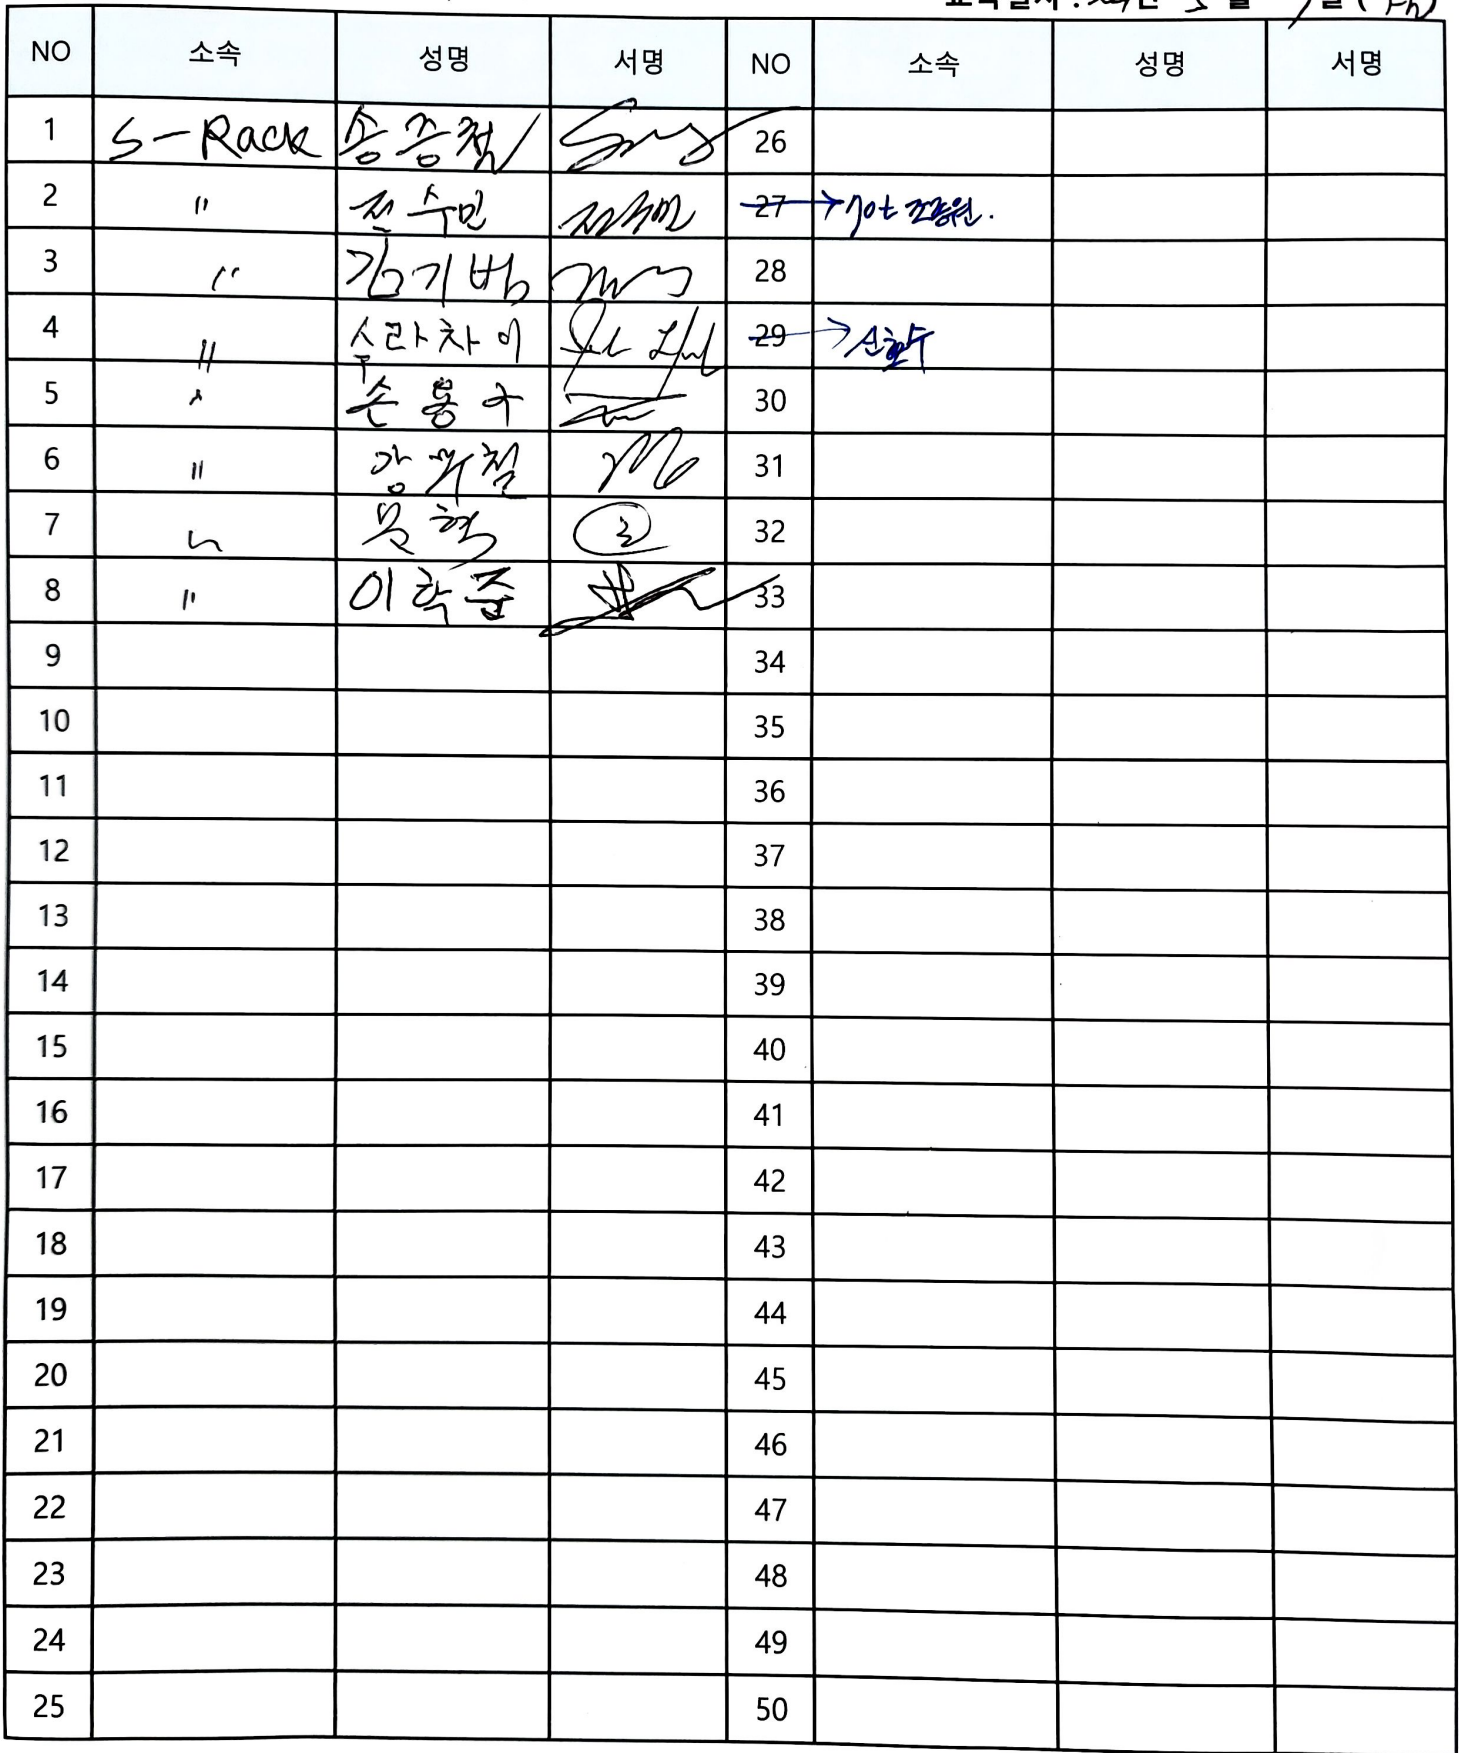 NO 소속 성명 서명 NO 소속 성명 서명
1 S-Rack 송종철 26
2 〃 전수민 전수민 27
3 〃 김기범 28
4 〃 수라차이 29 → 신현수
5 〃 손용수 30
6 〃 31
7 〃 32
8 〃 이학준 33
9 34
10 35
11 36
12 37
13 38
14 39
15 40
16 41
17 42
18 43
19 44
20 45
21 46
22 47
23 48
24 49
25 50